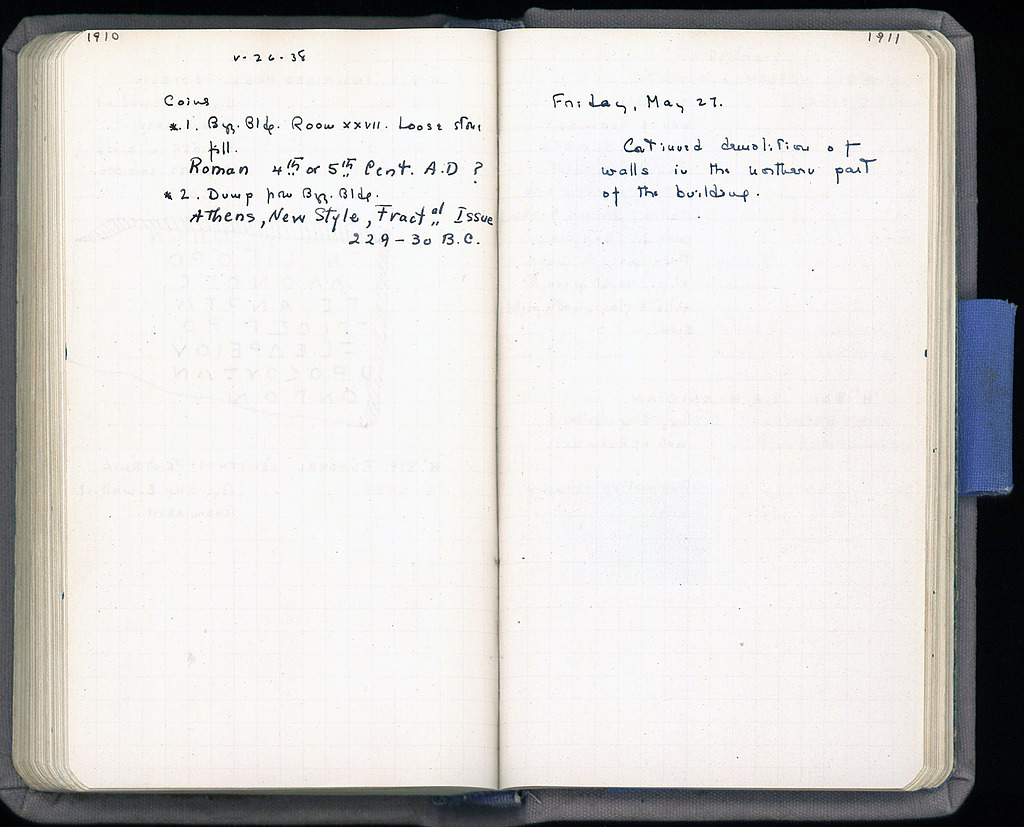 1910
V-26-38
Coins
*.1. Byz. Bldg. Room XXVII. Loose stone
fill.
Roman 4th or 5th Cent. A.D ?
* 2. Dump from Byz. Bldg.
Athens, New Style, Fract.al Issue
229-30 B.C.
1911
Friday, May 27.
Continued demolition of
walls in the northern part
of the building.